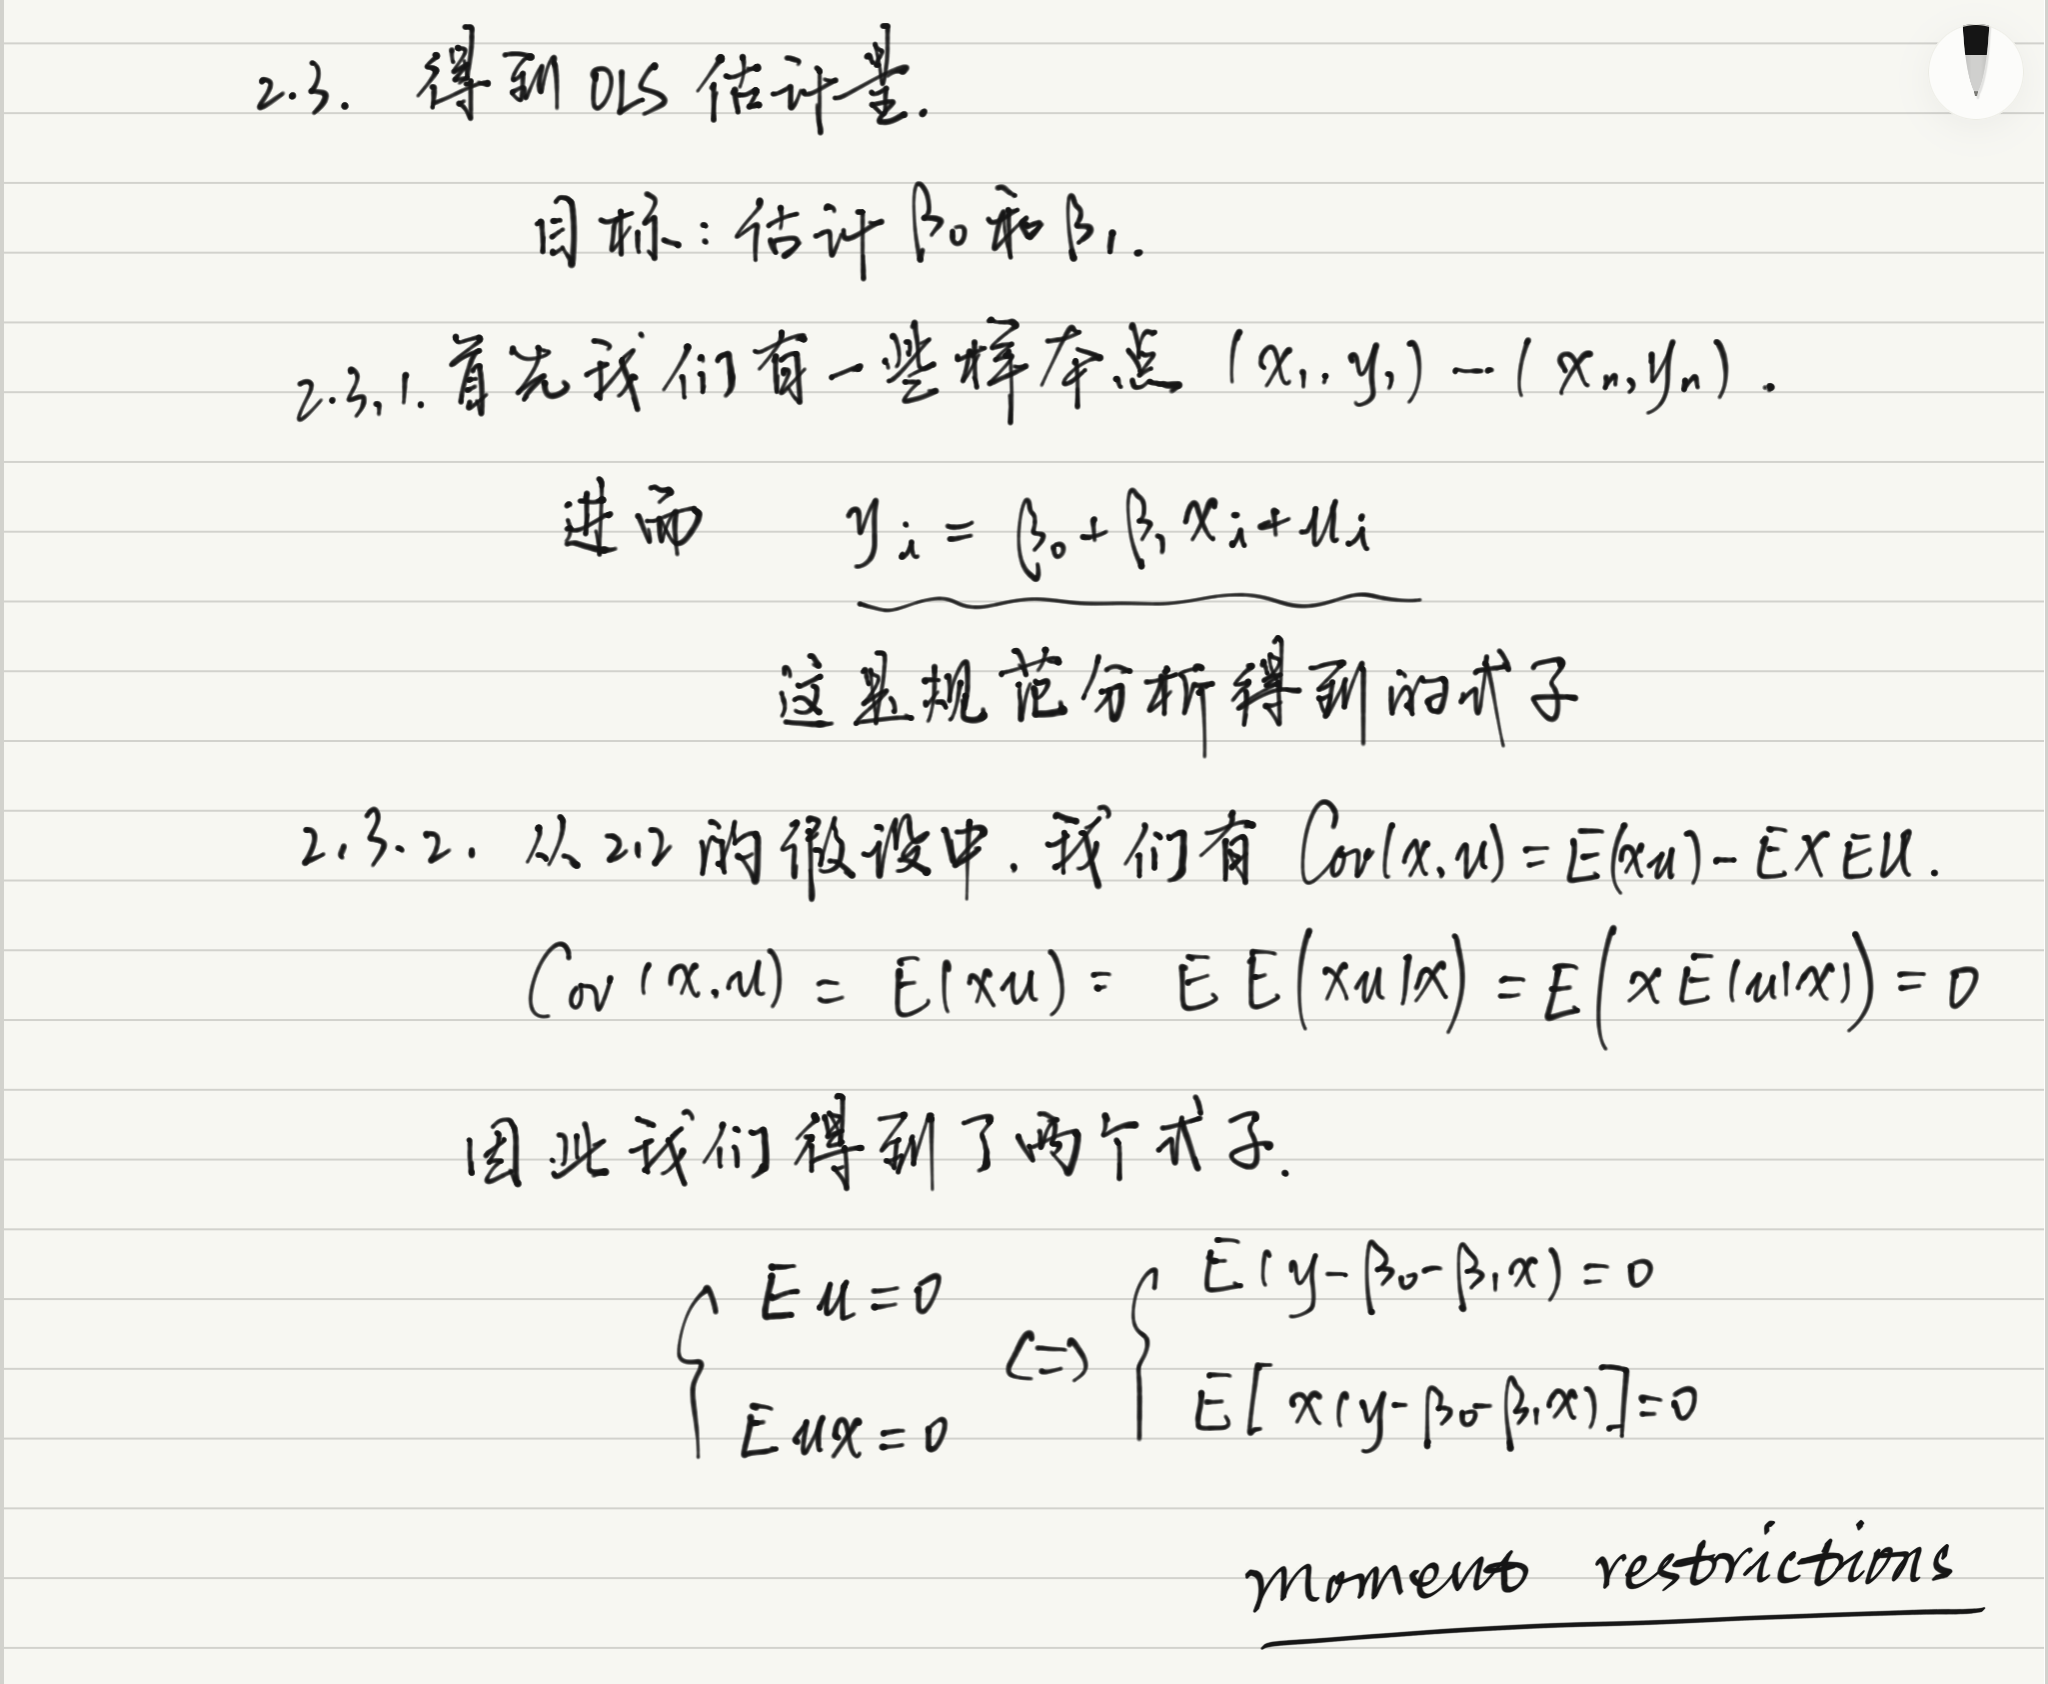 2.3. 得到 OLS 估计量.
目标: 估计 β₀ 和 β₁.
2.3.1. 首先我们有一些样本点 (x₁, y₁) --- (xₙ, yₙ).
进而 yᵢ = β₀ + β₁xᵢ + uᵢ
这是规范分析得到的式子
2.3.2. 从 2.2 的假设中, 我们有 Cov(x,u) = E(xu) - EXEU.
Cov(x,u) = E(xu) = E E(xu|x) = E(x E(u|x)) = 0
因此我们得到了两个式子.
{ Eu = 0 <=> { E(y-β₀-β₁x) = 0
Eux = 0 E[x(y-β₀-β₁x)] = 0
moment restrictions